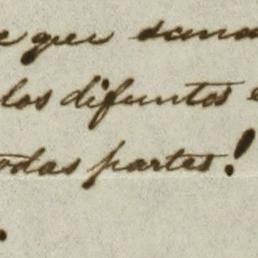 e que sana
los difuntos e
odas partes!
.